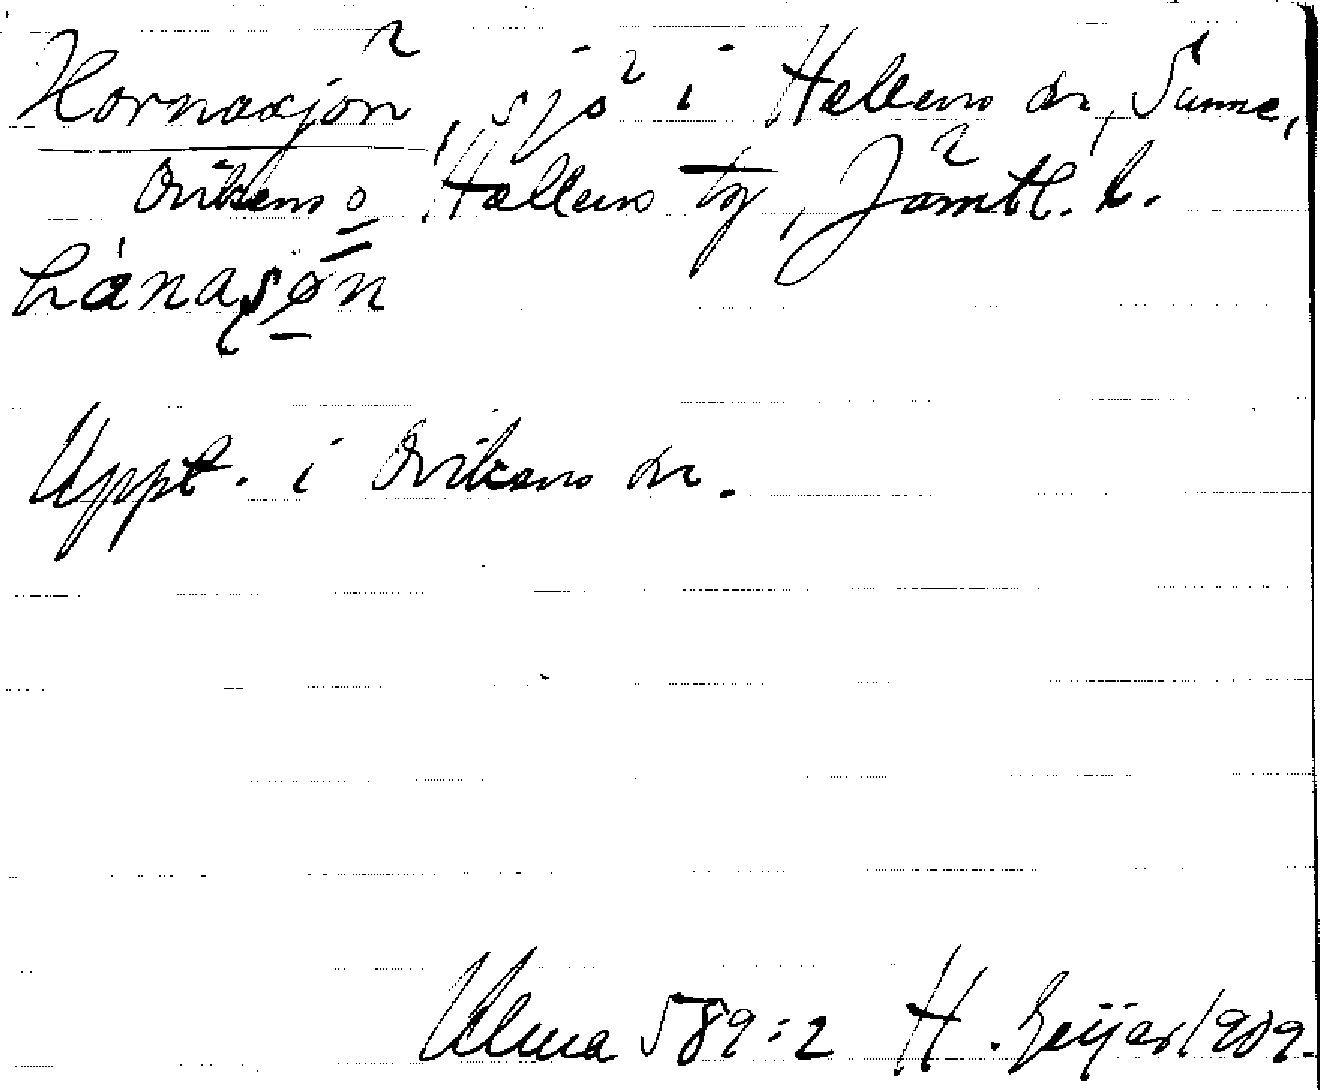 Hornasjön, sjö i Hallens sn, Sunne,
Ovikens o Hallens tg, Jämtl. l.
Lánasøn
Uppt. i Ovikens sn.
Ulma 589:2 H. Geijer 1909.